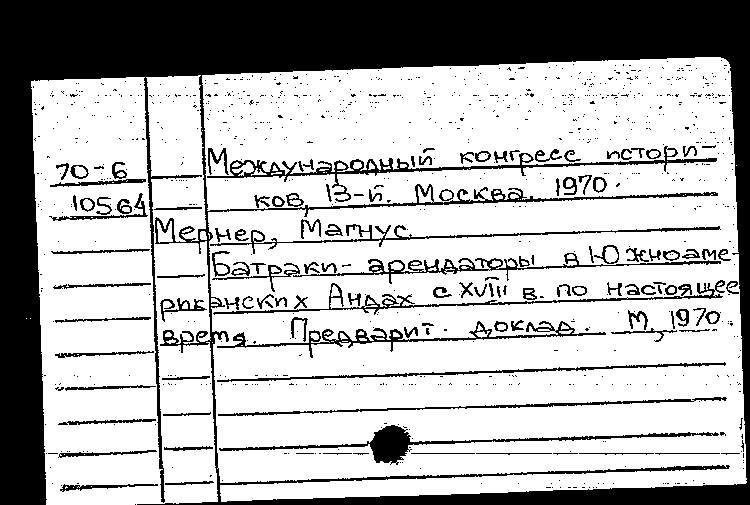 70-6 Международный конгресс истори-
10564 ков, 13-й. Москва. 1970.
Мернер, Магнус.
Батраки-арендаторы в Южноаме-
риканских Андах с XVIII в. по настоящее
время. Предварит. доклад. М., 1970.